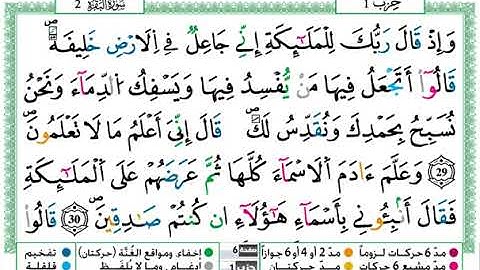 حزب 1 سُورَةُ البَقَرَة 2
وَإِذْ قَالَ رَبُّكَ لِلْمَلَٰٓئِكَةِ إِنِّے جَاعِلٌ فِے اِ۬لَارْضِ خَلِيفَةٗۖ
قَالُوٓاْ أَتَجْعَلُ فِيهَا مَنْ يُّفْسِدُ فِيهَا وَيَسْفِكُ اُ۬لدِّمَآءَ وَنَحْنُ
نُسَبِّحُ بِحَمْدِكَ وَنُقَدِّسُ لَكَۖ قَالَ إِنِّيَ أَعْلَمُ مَا لَا تَعْلَمُونَۖ
29 وَعَلَّمَ ءَادَمَ اَ۬لَاسْمَآءَ كُلَّهَا ثُمَّ عَرَضَهُمْ عَلَى اَ۬لْمَلَٰٓئِكَةِ
فَقَالَ أَنۢبِـُٔونِے بِأَسْمَآءِ هَٰٓؤُلَآءِ ان كُنتُمْ صَٰدِقِينَۖ 30 قَالُواْ
مدّ 6 حركات لزوماً مدّ 2 أو 4 أو 6 جوازاً 6 إخفاء، ومواقع الغُنَّة (حركتان) تفخيم
مدّ مشبع 6 حركات مدّ حركتان إدغام، وما لا يُلفظ قلقلة